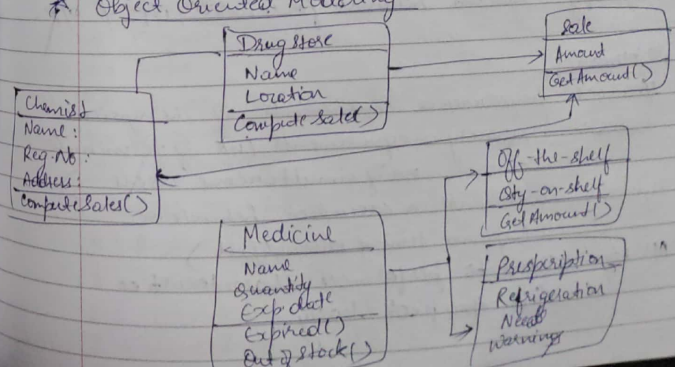 Object Oriented Modelling
Drug Store
Name
Location
Compute Sales()
Sale
Amount
Get Amount()
Chemist
Name:
Reg. No:
Address:
Compute Sales()
Off-the-shelf
Qty-on-shelf
Get Amount()
Medicine
Name
Quantity
Exp date
Expired()
Out of Stock()
Prespcription
Refrigeration
Needs
Warning